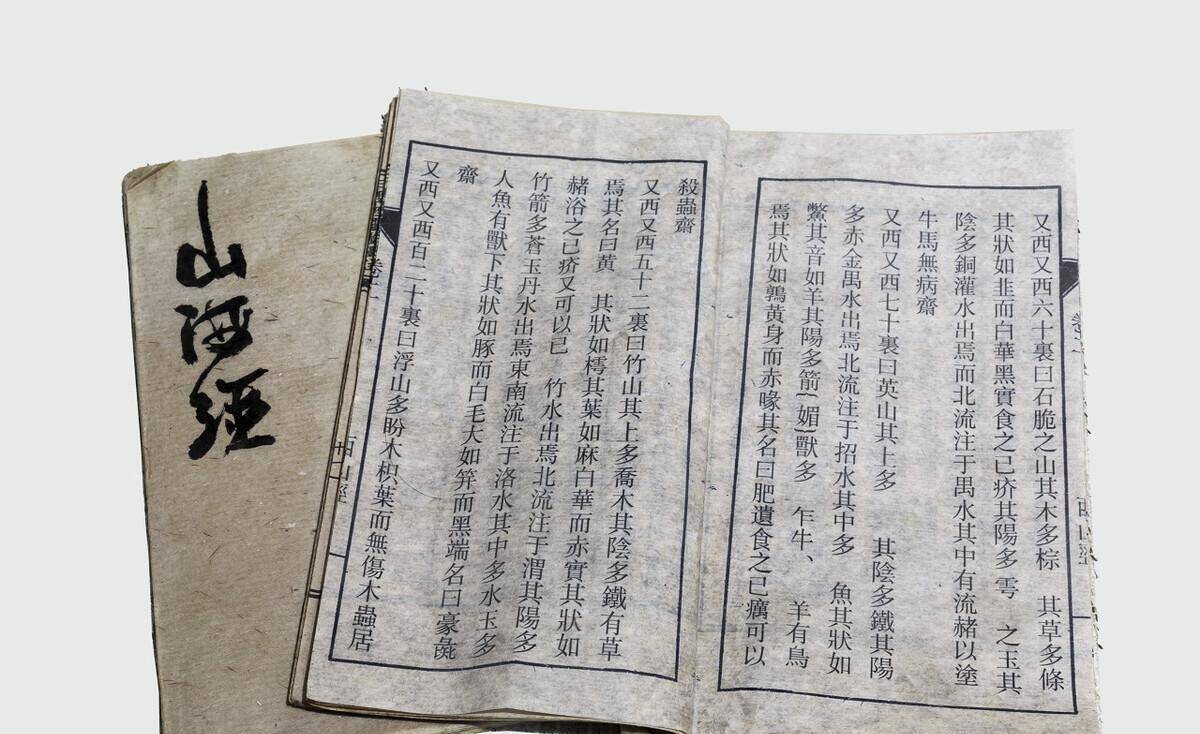 山海經
又西又西六十裏曰石脆之山其木多棕　其草多條
其狀如韭而白華黑實食之已疥其陽多雩　之玉其
陰多銅灌水出焉而北流注于禺水其中有流赭以塗
牛馬無病齋
又西又西七十裏曰英山其上多　其陰多鐵其陽
多赤金禺水出焉北流注于招水其中多　魚其狀如
鱉其音如羊其陽多箭{媚}獸多　乍牛、　羊有鳥
焉其狀如鶉黃身而赤喙其名曰肥遺食之已癘可以
殺蟲齋
又西又西五十二裏曰竹山其上多喬木其陰多鐵有草
焉其名曰黃　其狀如樗其葉如麻白華而赤實其狀如
赭浴之已疥又可以已　竹水出焉北流注于渭其陽多
竹箭多蒼玉丹水出焉東南流注于洛水其中多水玉多
人魚有獸下其狀如豚而白毛大如笄而黑端名曰豪彘
齋
又西又西百二十裏曰浮山多盼木枳葉而無傷木蟲居
西山經